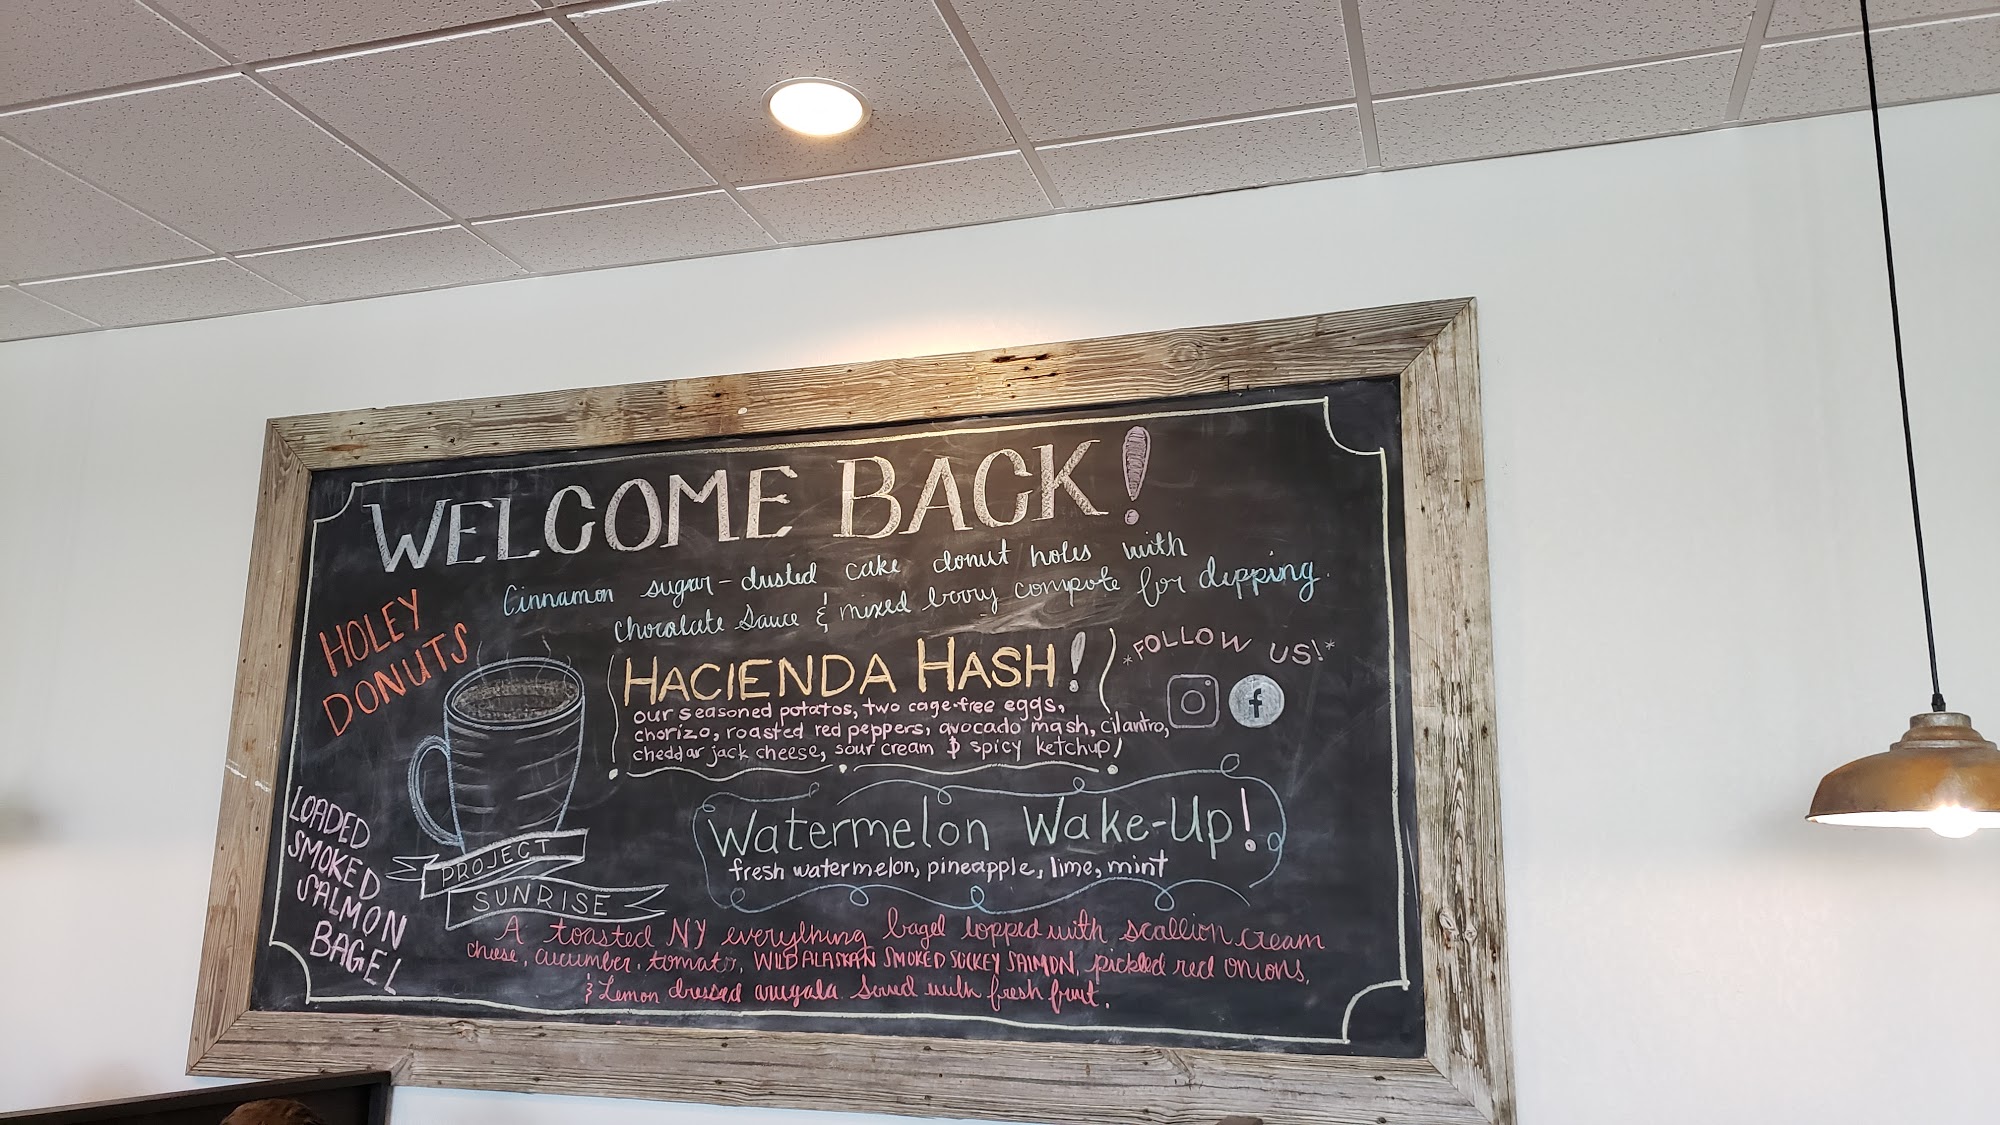 WELCOME BACK!
HOLEY
DONUTS
Cinnamon sugar-dusted cake donut holes with
chocolate sauce & mixed berry compote for dipping.
HACIENDA HASH!
our seasoned potatos, two cage-free eggs,
chorizo, roasted red peppers, avocado mash, cilantro,
cheddar jack cheese, sour cream & spicy ketchup!
*FOLLOW US!*
f
Watermelon Wake-Up!
fresh watermelon, pineapple, lime, mint
PROJECT
SUNRISE
LOADED
SMOKED
SALMON
BAGEL
A toasted NY everything bagel topped with scallion cream
cheese, cucumber, tomato, WILD ALASKAN SMOKED SOCKEY SALMON, pickled red onions,
& Lemon dressed arugala. Served with fresh fruit.